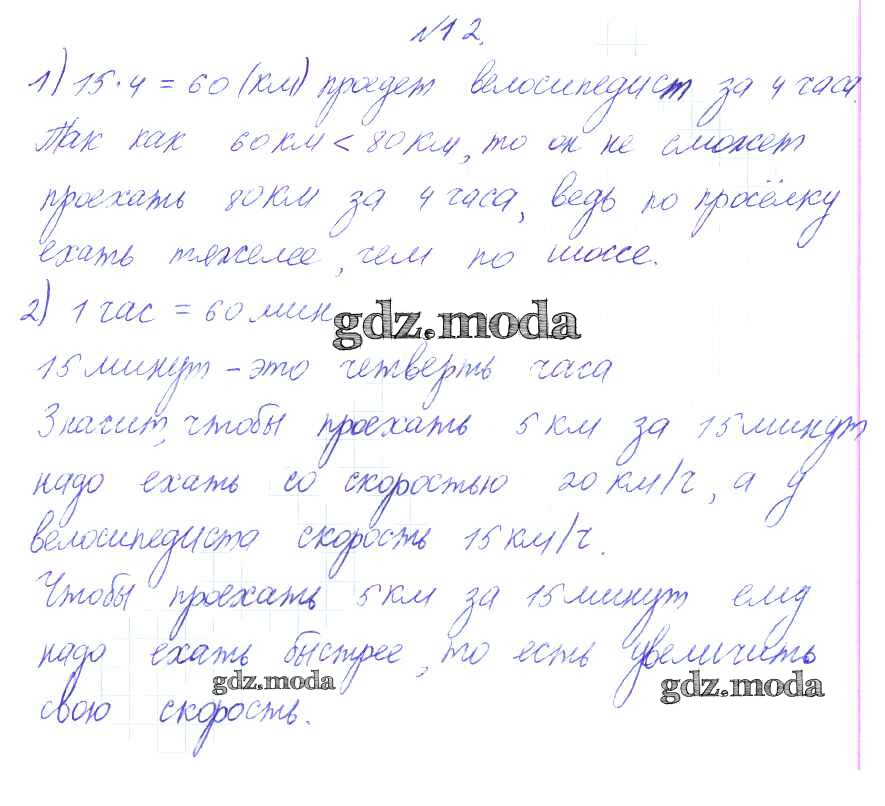 №12.
1) 15·4 = 60 (км) проедет велосипедист за 4 часа.
Так как 60 км < 80 км, то он не сможет
проехать 80 км за 4 часа, ведь по просёлку
ехать тяжелее, чем по шоссе.
2) 1 час = 60 мин
gdz.moda
15 минут – это четверть часа
Значит, чтобы проехать 5 км за 15 минут
надо ехать со скоростью 20 км/ч, а у
велосипедиста скорость 15 км/ч.
Чтобы проехать 5 км за 15 минут ему
надо ехать быстрее, то есть увеличить
gdz.moda
gdz.moda
свою скорость.